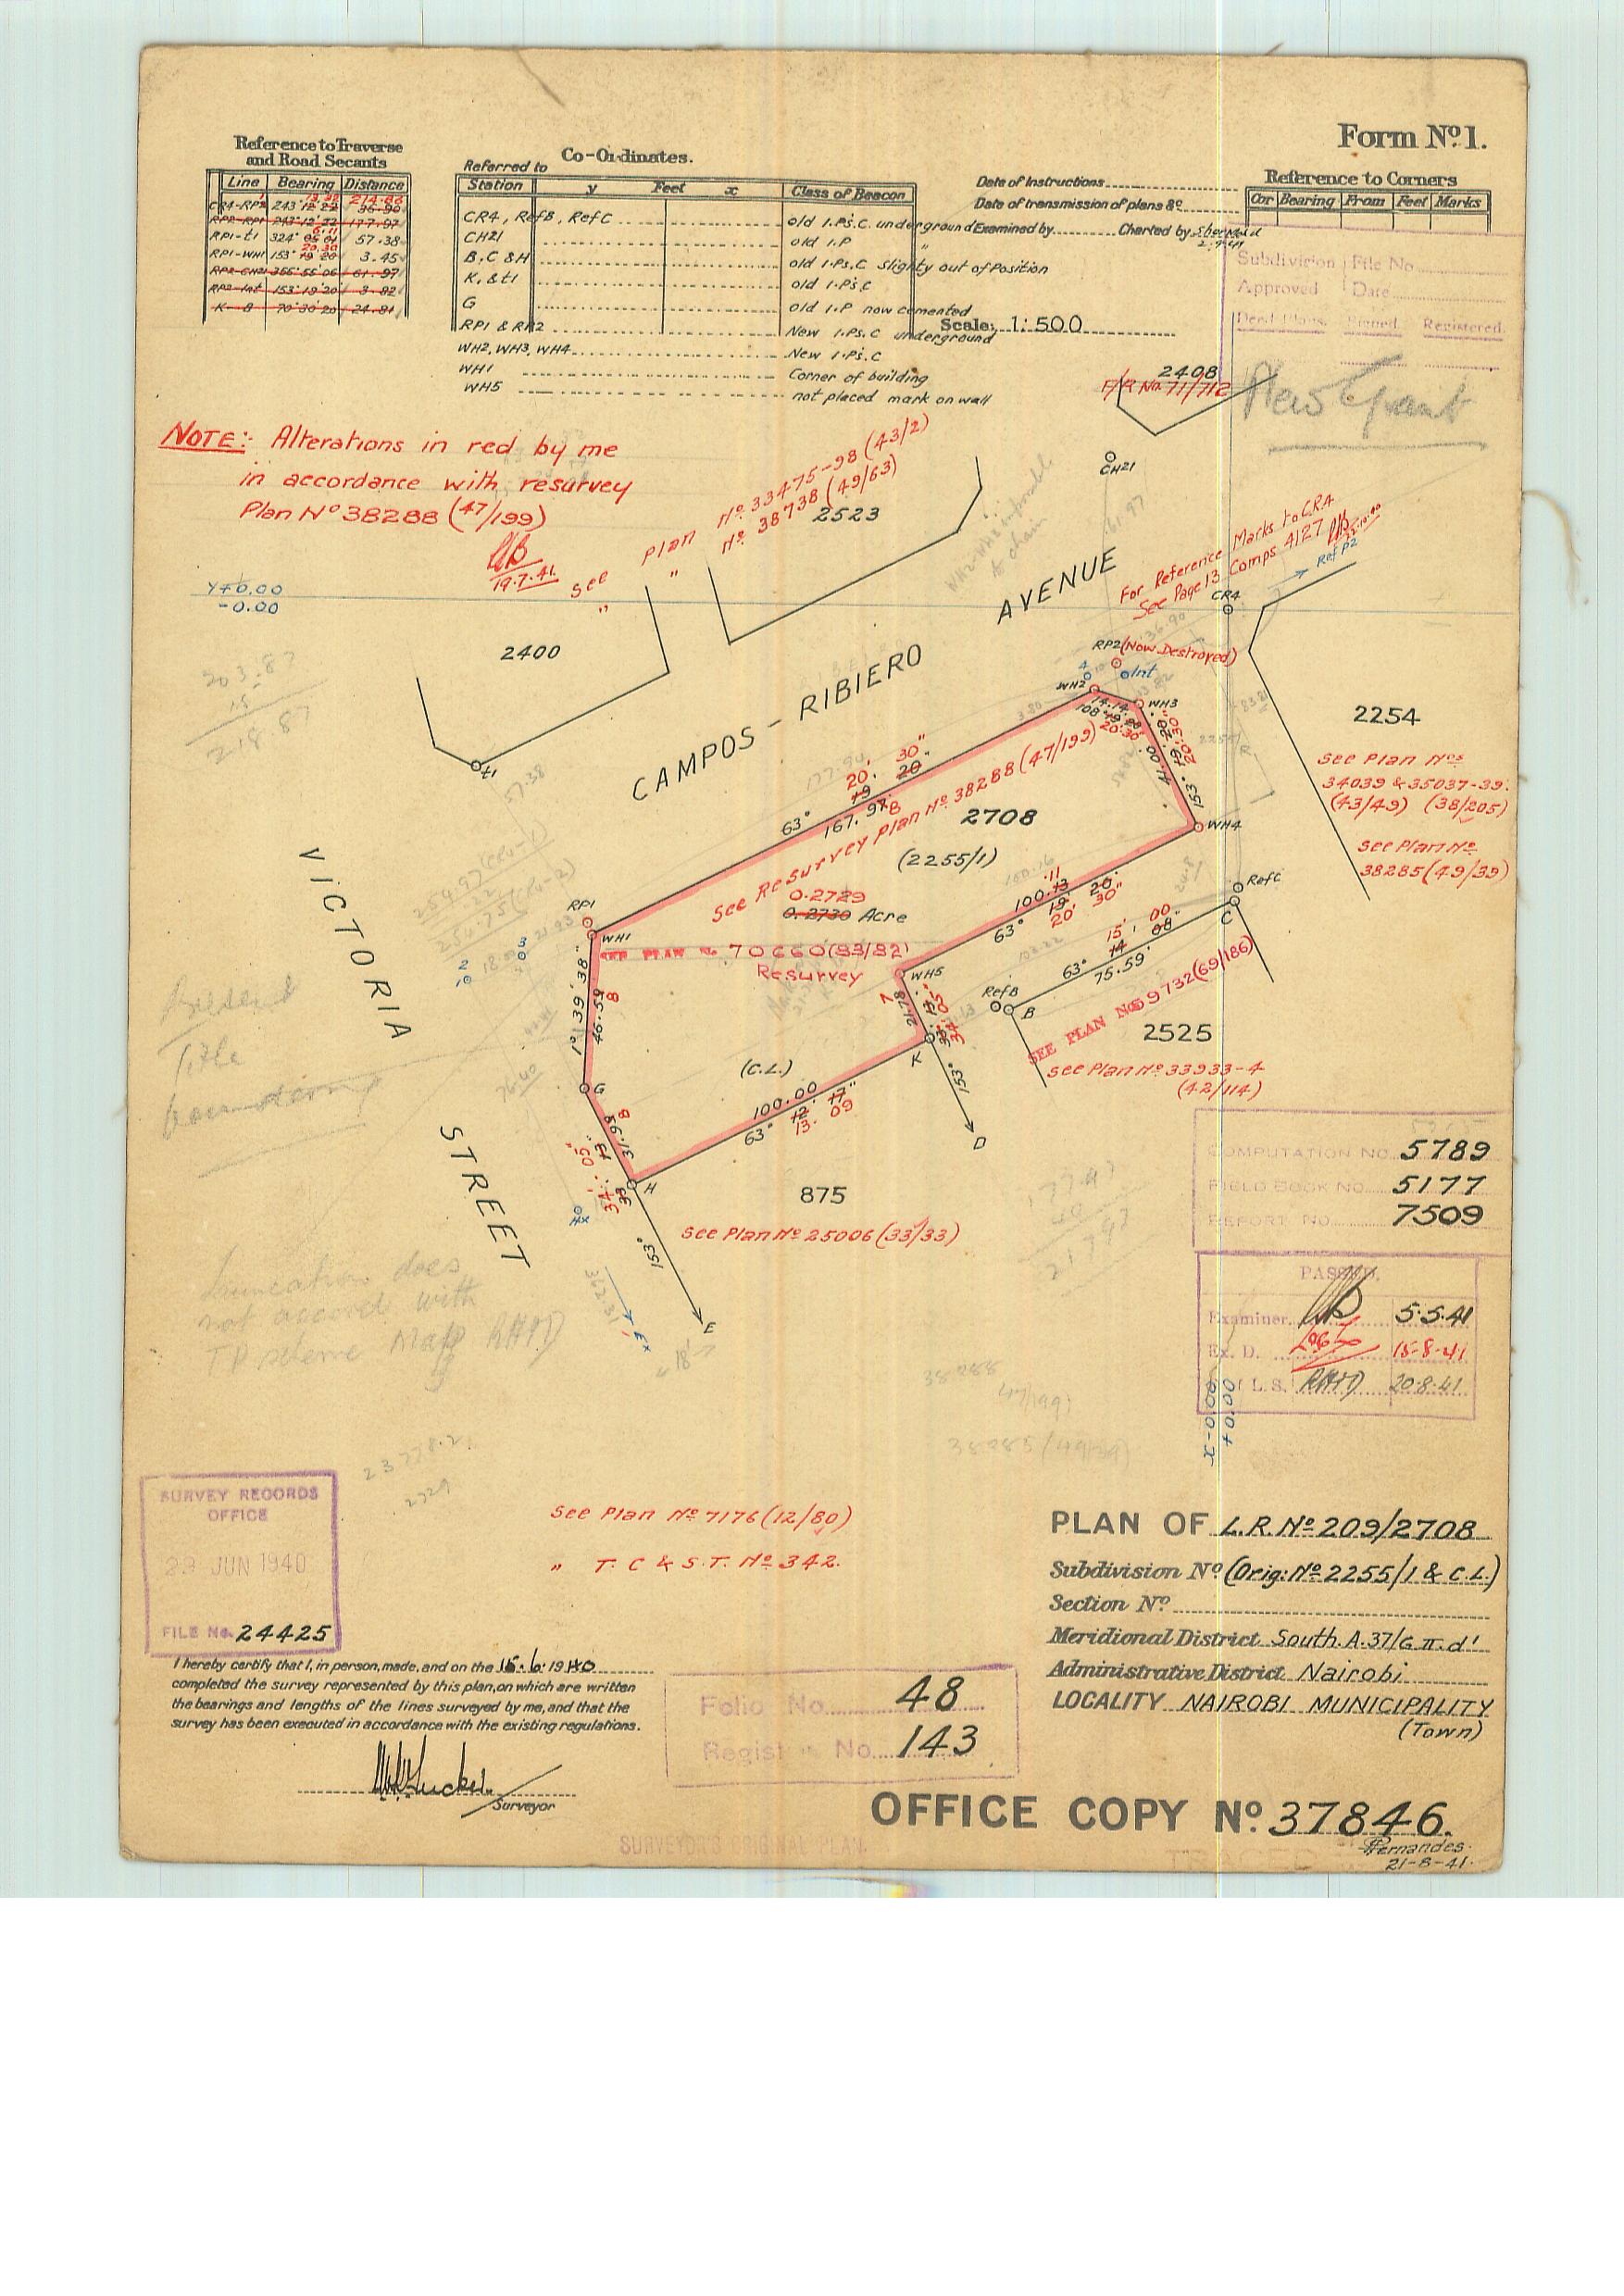 Form No. 1.
Reference to Traverse
and Road Secants
Line Bearing Distance
RP1-t1 57.38
RP1-WH1 3.45
Co-Ordinates.
Referred to
Station y Feet x Class of Beacon
CR4, RefB, RefC old I.Ps.C. underground
CH21 old I.P "
B, C & H old I.Ps.C slighty out of Position
K, & t1 old I.Ps.C
G Old I.P now cemented
RP1 & RP2 New I.Ps.C underground
WH2, WH3, WH4 New I.Ps.C
WH1 Corner of building
WH5 not placed mark on wall
Date of Instructions
Date of transmission of plans &c
Examined by Charted by
Scale: 1:500
Reference to Corners
Cor Bearing From Feet Marks
Subdivision File No
Approved Date
Deed Plans. Signed. Registered.
New Grant
2408
F/R No. 71/712
NOTE:- Alterations in red by me
in accordance with resurvey
Plan No 38288 (47/199)
19.7.41
See Plan No. 33475-98 (43/2)
" " No. 38738 (49/63)
2523
CH21
For Reference Marks to CR4
See Page 13 Comps 4127
Ref P2
CR4
Y+0.00
-0.00
2400
CAMPOS - RIBIERO AVENUE
RP2 (Now Destroyed)
Int
WH2
WH3
14.14
t1
57.38
203.87
15
218.87
2254
See Plan Nos
34039 & 35037-39.
(43/49) (38/205)
See Plan No
38285 (49/39)
63° 20' 30"
167.97
8
See Resurvey Plan No. 38288 (47/199)
2708
(2255/1)
0.2729
0.2730 Acre
41.00
153°
WH4
RefC
C
RP1
WH1
SEE PLAN No 70660 (83/82)
Resurvey
100.13
.11
63° 20' 30"
WH5
63° 15' 00"
75.59'
RefB
B
SEE PLAN No 59732 (69/186)
2525
See Plan No. 33933-4
(42/114)
VICTORIA
STREET
1° 39' 38"
46.59
8
G
(C.L.)
K
153°
D
100.00
63° 13. 09
31.99
8
H
Hx
875
See Plan No. 25006 (33/33)
153°
E
Ex
Truncation does
not accord with
TP scheme Map RHD
38288
47/199
38285 (49/39)
COMPUTATION NO. 5789
FIELD BOOK NO. 5177
REPORT NO. 7509
PASSED.
Examiner. 5.5.41
Ex. D. 15-8-41
L.S. RHD 20.8.41
x-0.00
+0.00
SURVEY RECORDS
OFFICE
JUN 1940
FILE No. 24425
See Plan No 7176 (12/80)
" T. C & S.T. No 342.
PLAN OF L.R. No 209/2708
Subdivision No (Orig: No 2255/1 & C.L.)
Section No
Meridional District South. A.37/G II. d'
Administrative District Nairobi
LOCALITY NAIROBI MUNICIPALITY
(Town)
I hereby certify that I, in person, made, and on the 15.6.1940
completed the survey represented by this plan, on which are written
the bearings and lengths of the lines surveyed by me, and that the
survey has been executed in accordance with the existing regulations.
Surveyor
Folio No. 48
Register No. 143
OFFICE COPY No. 37846.
Fernandes
21-8-41.
SURVEYOR'S ORIGINAL PLAN.
TRACED